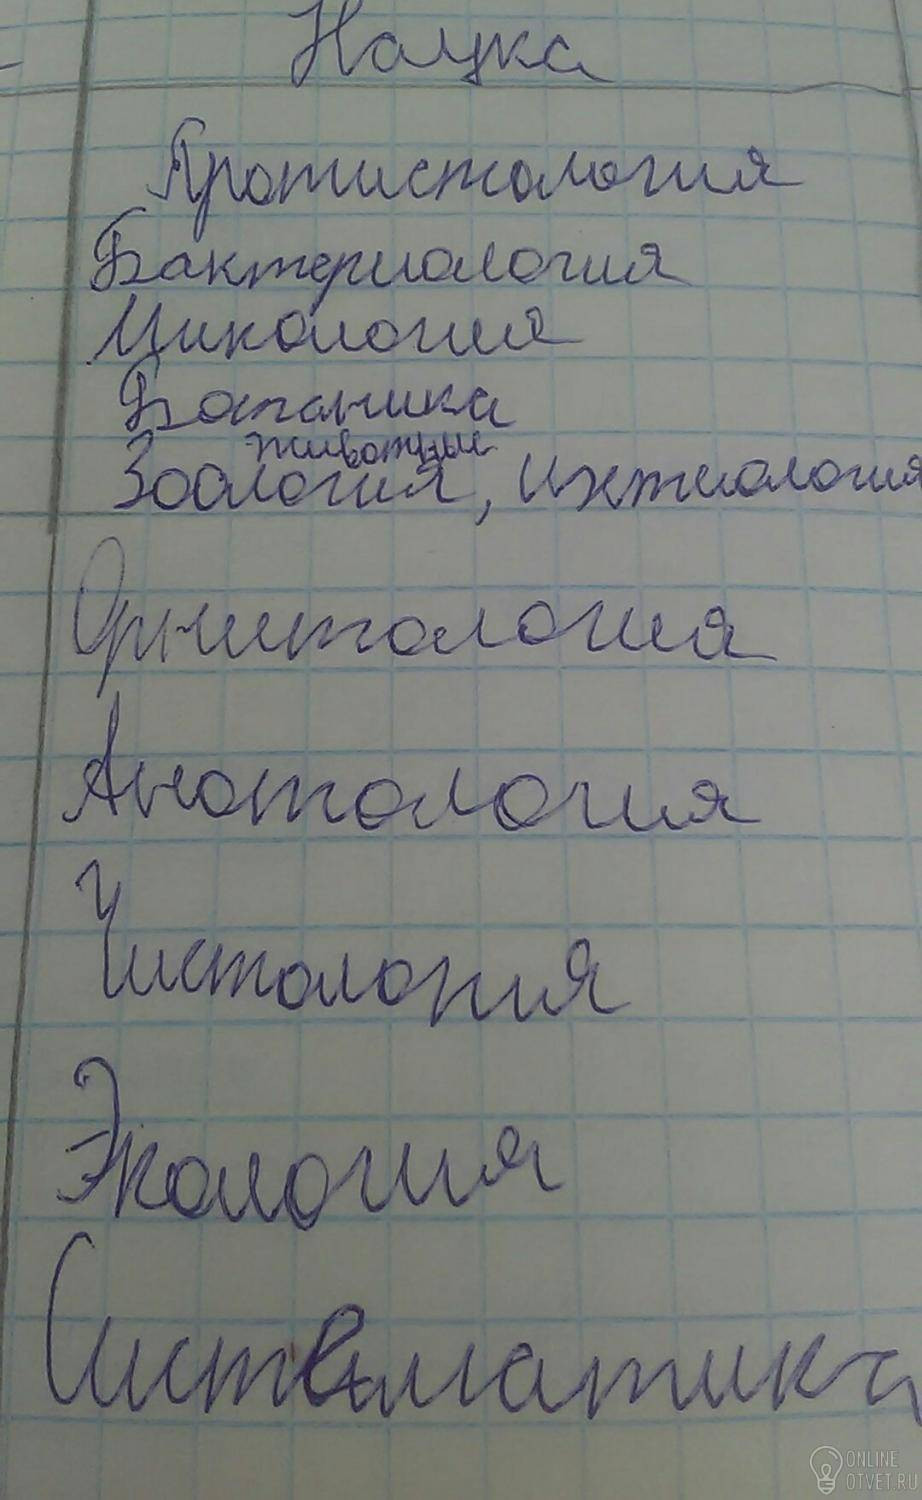 Наука
Протистология
Бактериология
Микология
Ботаника
животные
Зоология, Ихтиология
Орнитология
Анотология
Гистология
Экология
Систематика
ONLINE
OTVET.RU